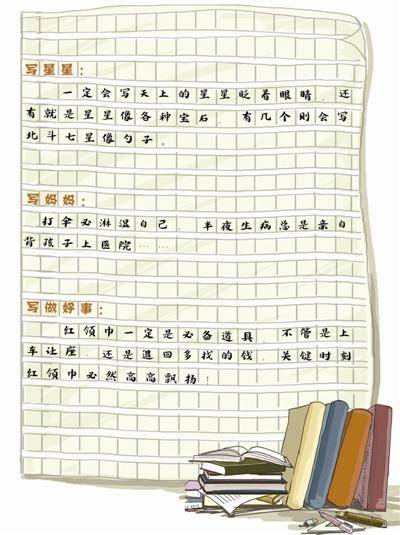 写星星:
一定会写天上的星星眨着眼睛，还
有就是星星像各种宝石，有几个则会写
北斗七星像勺子。
写妈妈:
打伞必淋湿自己，半夜生病总是亲自
背孩子上医院……
写做好事:
红领巾一定是必备道具，不管是上
车让座，还是退回多找的钱，关键时刻
红领巾必然高高飘扬！